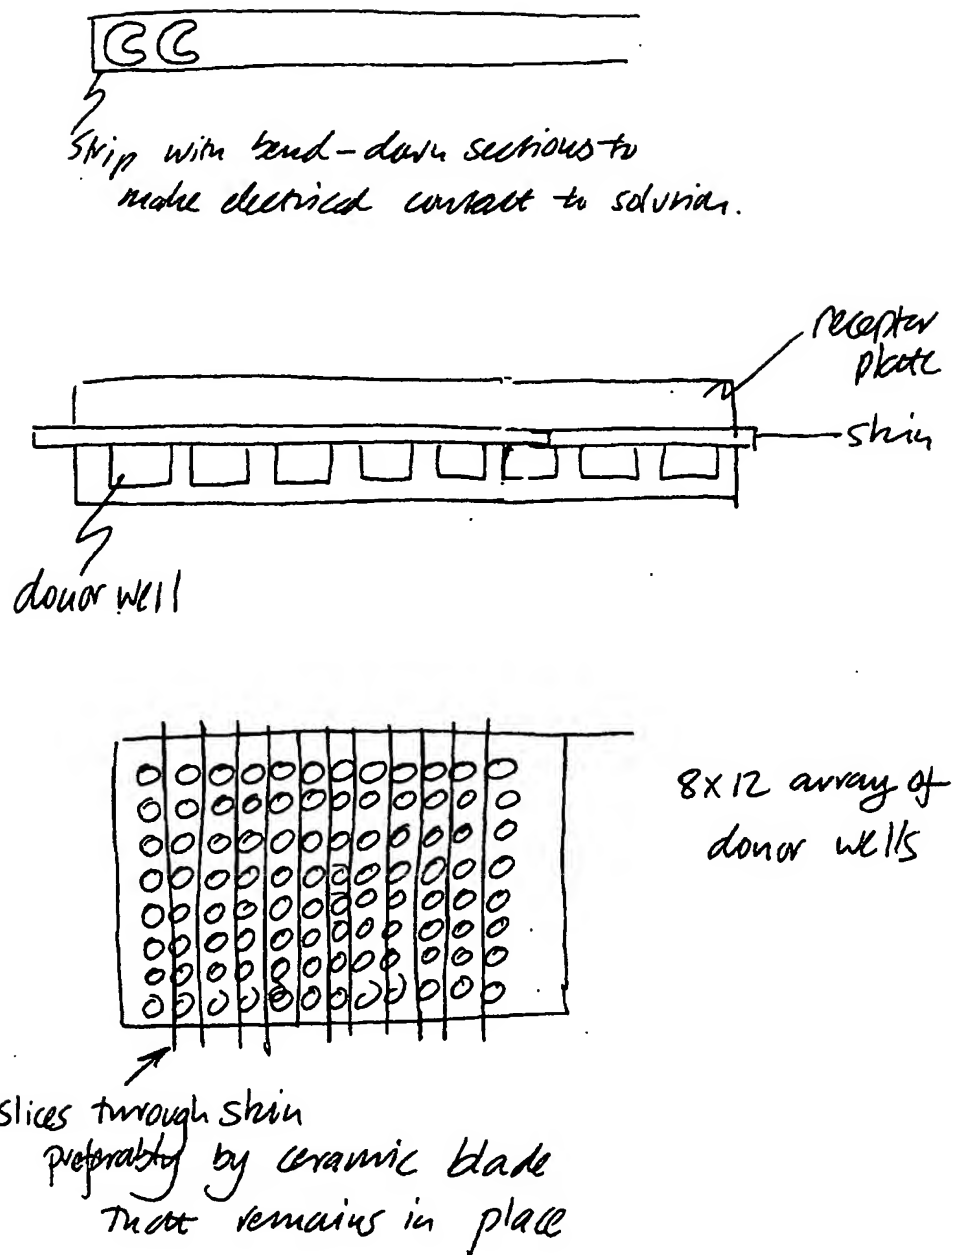 Strip with bend-down sections to
make electrical contact to solution.
receptor
plate
skin
donor well
8x12 array of
donor wells
slices through skin
preferably by ceramic blade
that remains in place